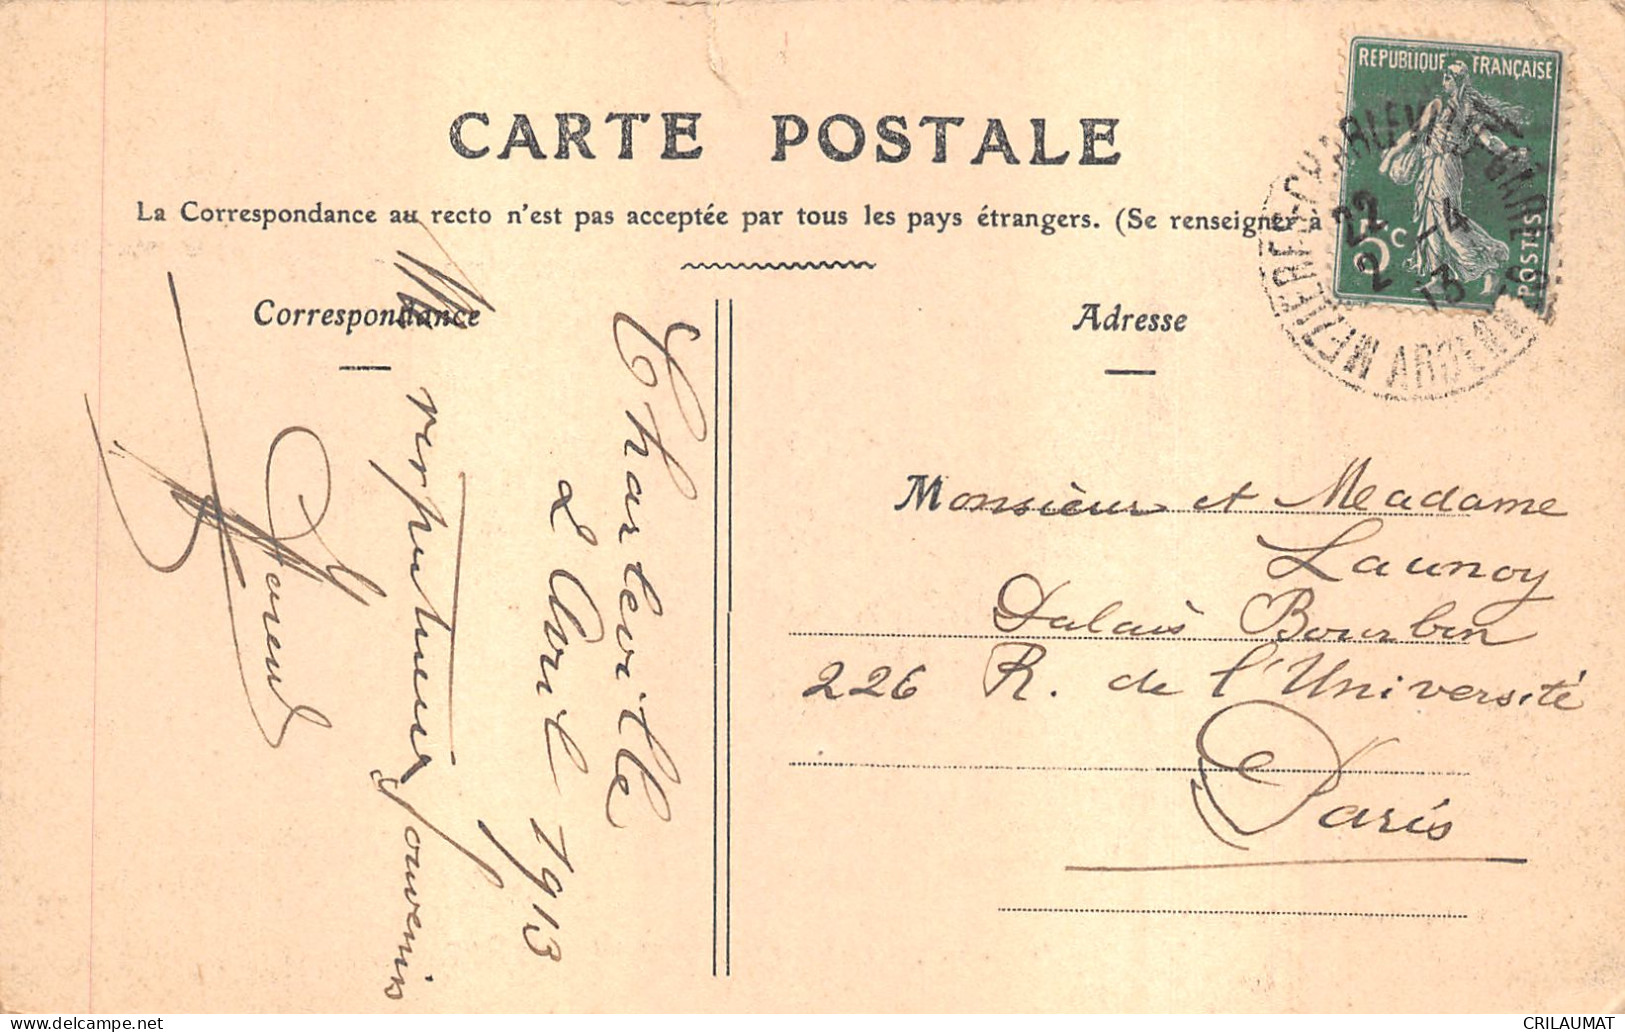 CARTE POSTALE
La Correspondance au recto n'est pas acceptée par tous les pays étrangers. (Se renseigner à
Correspondance
Adresse
REPUBLIQUE FRANÇAISE
5c
POSTES
MEZIERES-CHARLEVILLE-GARE
22
2 -4
13
ARDENNES
Charleville
2 Avril 1913
respectueux
Souvenirs
Monsieur et Madame
Launoy
Palais Bourbon
226 R. de l'Université
Paris
CRILAUMAT